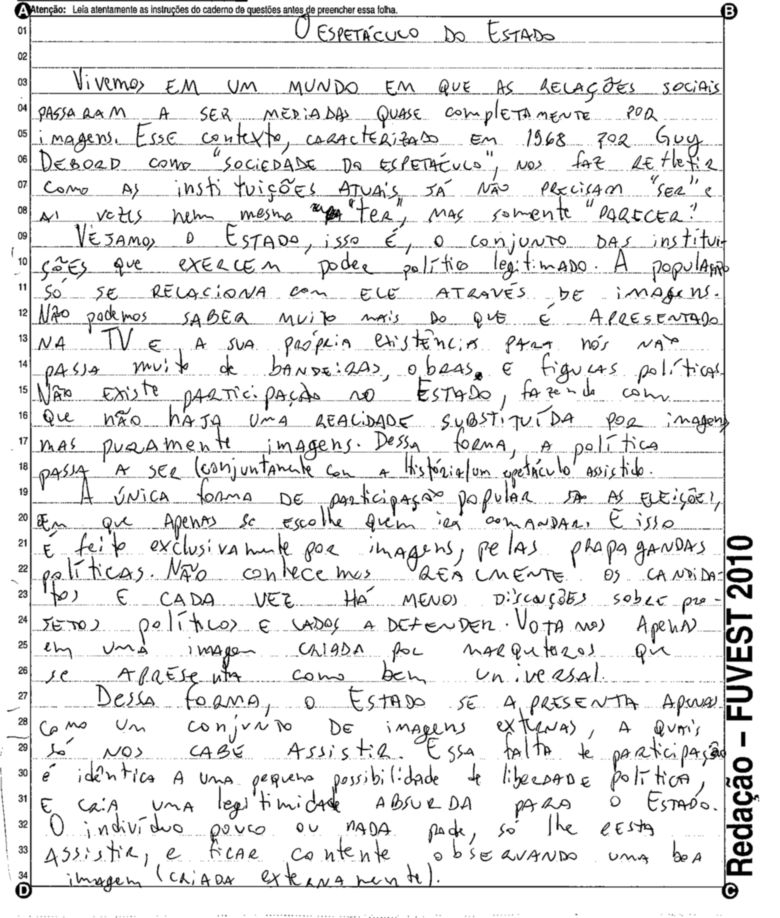 A Atenção: Leia atentamente as instruções do caderno de questões antes de preencher essa folha. B
01 O ESPETÁCULO DO ESTADO
02
03 Vivemos EM UM MUNDO EM QUE AS RELAÇÕES SOCIAIS
04 PASSARAM A SER MEDIADAS QUASE COMPLETAMENTE POR
05 imagens. Esse contexto, CARACTERIZADO EM 1968 POR Guy
06 DEBORD como "SOCIEDADE DO ESPETÁCULO", nos faz REFletir
07 como AS instituições ATUAIS JÁ NÃO PRECISAM "SER" e
08 às vezes nem mesmo "TER", MAS somente "PARECER".
09 VEJAMOS O ESTADO, isso É, o conjunto DAS institui-
10 ÇÕES que EXERCEM poder político legitimado. A população
11 SÓ SE RELACIONA com ELE ATRAVÉS DE imagens.
12 Não podemos SABER muito mais do que é APRESENTADO
13 NA TV E A SUA própria existência PARA nós não
14 PASSA muito de BANDEIRAS, obras E figuras políticas.
15 Não EXISTE PARTICIPAÇÃO NO ESTADO, fazendo com
16 que não HAJA UMA REALIDADE SUBSTITUÍDA por imagens
17 mas puramente imagens. Dessa forma, A política
18 PASSA A SER (conjuntamente com a História) um espetáculo assistido.
19 A única forma DE participação popular são AS ELEIÇÕES,
20 Em que Apenas se escolhe quem irá comandar. E isso
21 É feito exclusivamente por imagens, pelas PROPAGANDAS
22 políticas. Não conhecemos REALMENTE OS CANDIDA-
23 tos E CADA VEZ HÁ MENOS DISCUSSÕES SOBRE PRO-
24 JETOS políticos E LADOS A DEFENDER. VOTAMOS Apenas
25 em uma imagem CRIADA por MARQUTEROS que
26 se APRESENTA como bem universal.
27 Dessa forma, o ESTADO SE APRESENTA Apenas
28 Como um conjunto DE imagens externas, A quais
29 só NOS CABE ASSISTIR. Essa falta de participação
30 é idêntica A uma pequena possibilidade de liberdade política,
31 E CRIA UMA legitimidade ABSURDA PARA O ESTADO.
32 O indivíduo pouco ou NADA pode, só lhe RESTA
33 ASSISTIR, e ficar contente observando uma boa
34 imagem (CRIADA externamente).
D C
Redação – FUVEST 2010